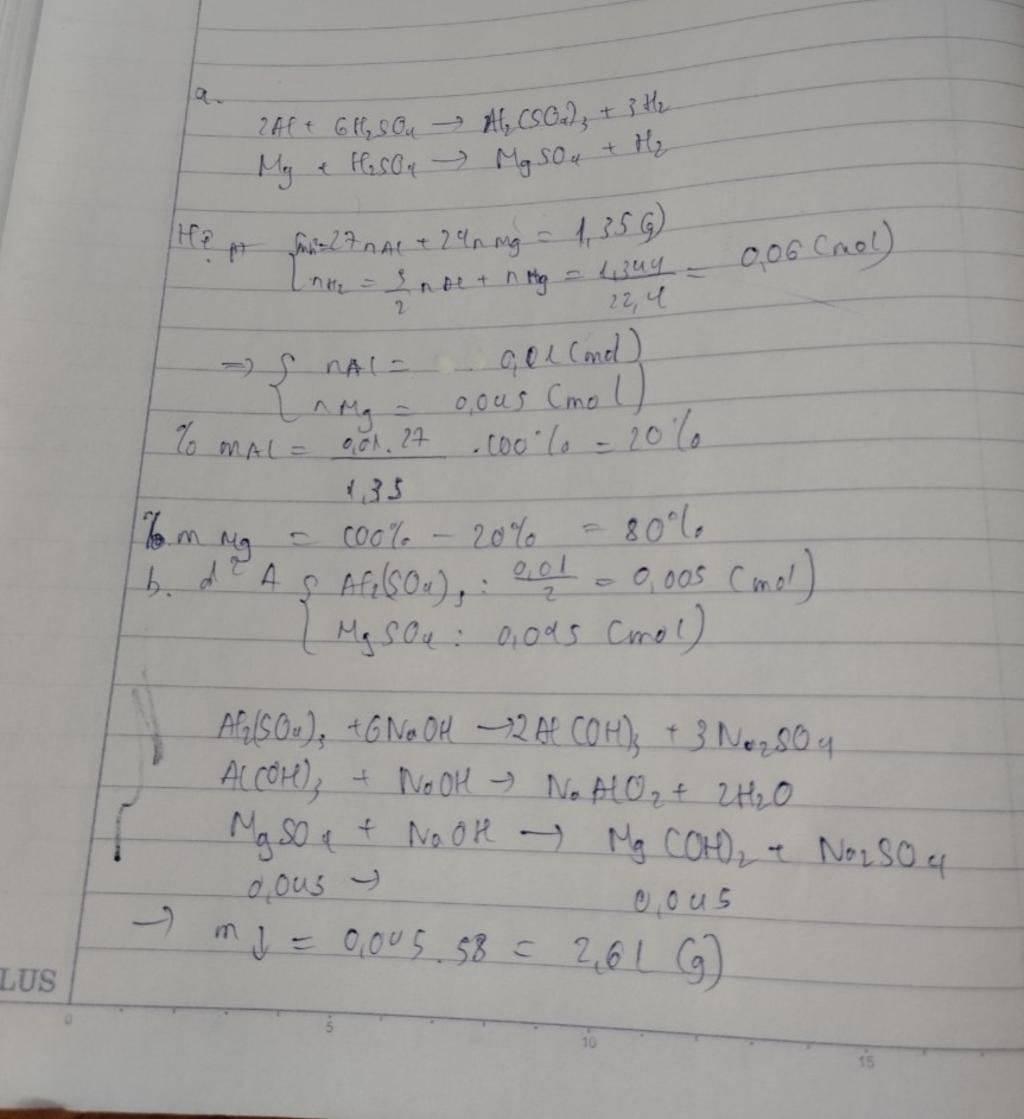 a.
2Al + 6H₂SO₄ → Al₂(SO₄)₃ + 3H₂
Mg + H₂SO₄ → MgSO₄ + H₂
27nAl + 24nMg = 1,35(g)
nH₂ = 3/2 nAl + nMg = 1,344/22,4 = 0,06 (mol)
=> { nAl = 0,01 (mol)
nMg = 0,045 (mol)
% mAl = 0,01.27/1,35 .100% = 20%
% m Mg = 100% - 20% = 80%
b. d² A { Al₂(SO₄)₃ : 0,01/2 = 0,005 (mol)
MgSO₄ : 0,045 (mol)
Al₂(SO₄)₃ + 6NaOH → 2Al(OH)₃ + 3Na₂SO₄
Al(OH)₃ + NaOH → NaAlO₂ + 2H₂O
MgSO₄ + NaOH → Mg(OH)₂ + Na₂SO₄
0,045 → 0,045
→ m↓ = 0,045.58 = 2,61 (g)
LUS
0 5 10 15